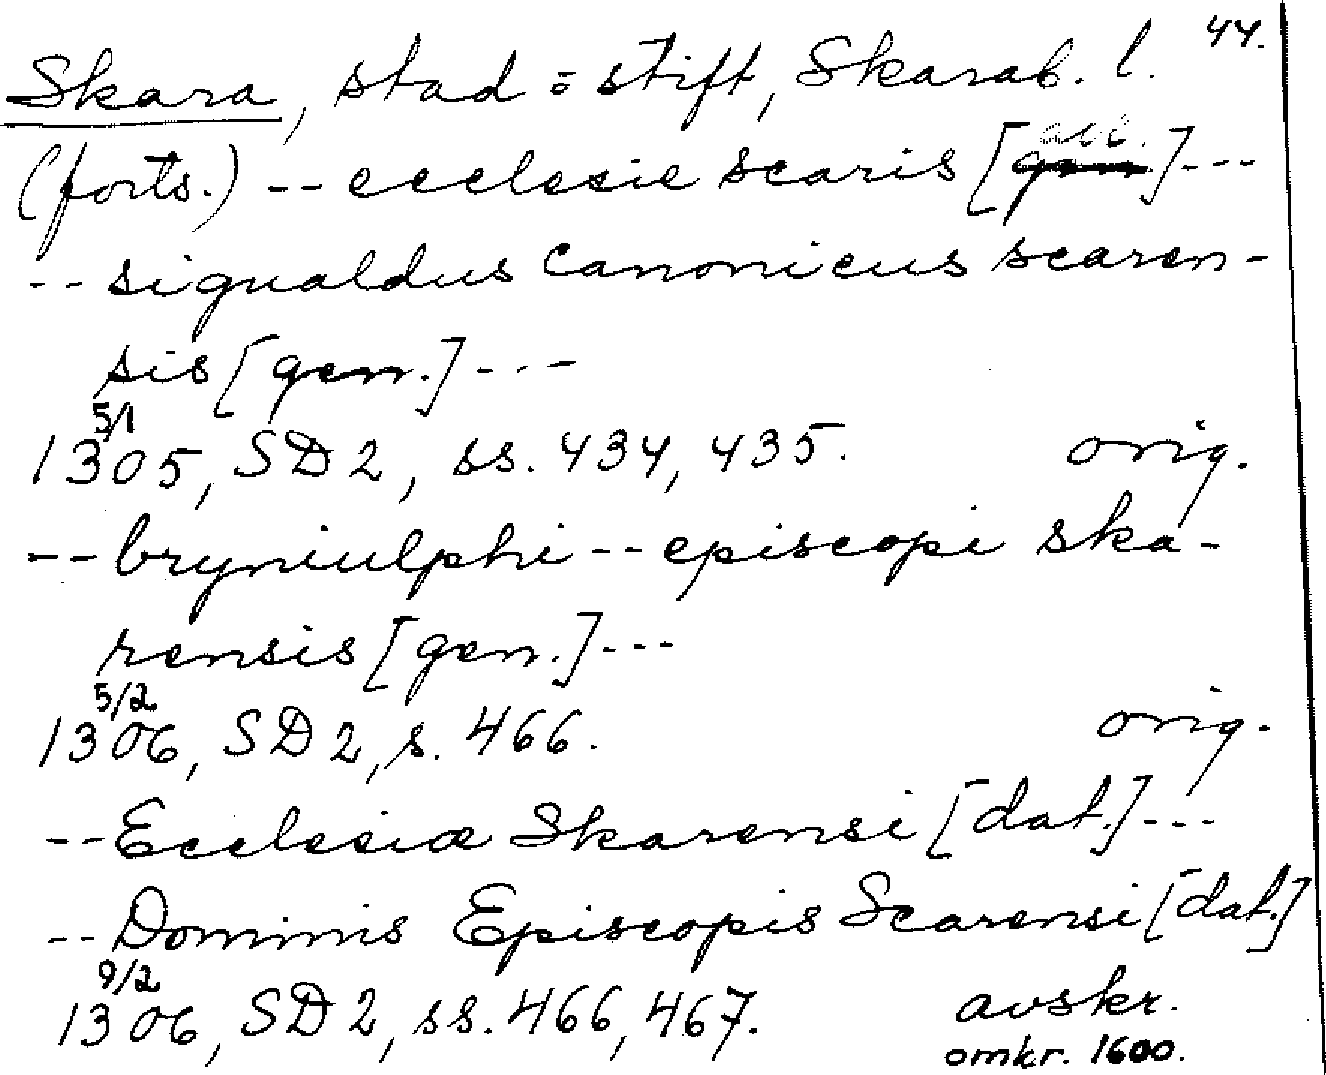 44.
Skara, stad = stift, Skarab. l.
acc.
(forts.) -- ecclesie scaris [gen.]---
-- sigualdus canonicus scaren-
sis [gen.]---
5/1
1305, SD 2, ss. 434, 435. orig.
-- bryniulphi -- episcopi ska-
rensis [gen.]---
5/2
1306, SD 2, s. 466. orig.
-- Ecclesiæ Skarensi [dat.]---
-- Dominis Episcopis Scarensi [dat.]
9/2
1306, SD 2, ss. 466, 467. avskr.
omkr. 1600.